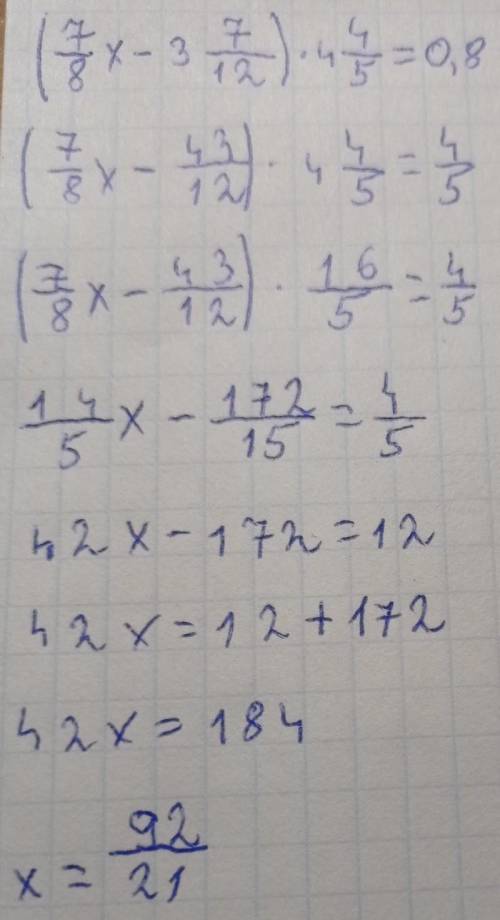 (7/8 x - 3 7/12) · 4 4/5 = 0,8
(7/8 x - 43/12) · 4 4/5 = 4/5
(7/8 x - 43/12) · 16/5 = 4/5
14/5 x - 172/15 = 4/5
42x - 172 = 12
42x = 12 + 172
42x = 184
x = 92/21